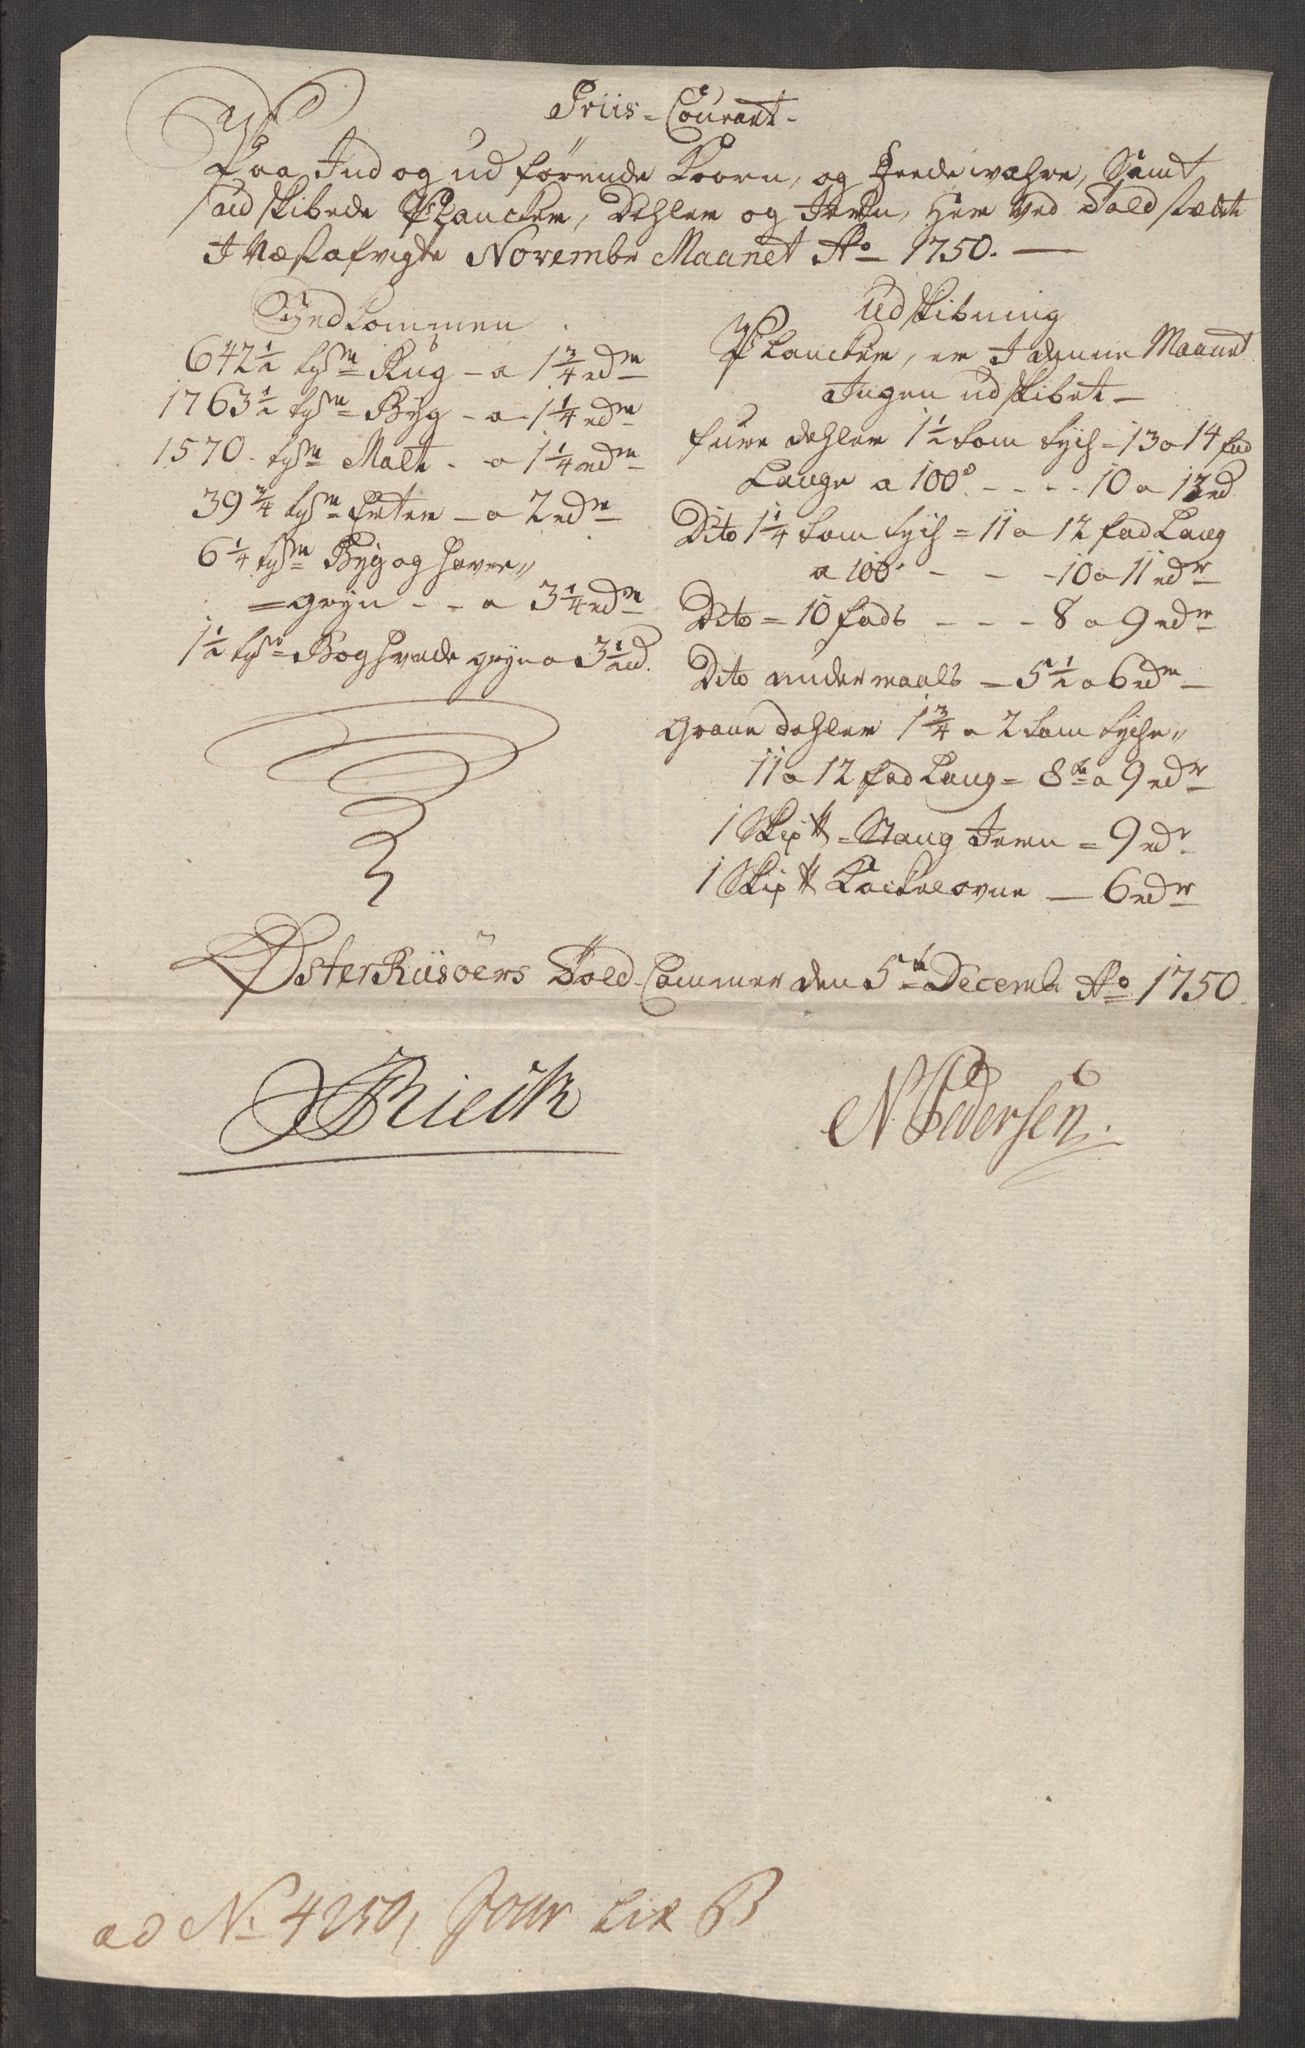 Priis-Courant-
Paa Ind og udførende Koorn, og Feedewahre, Samt
udskibede Plancker, Dehler og Jern, Her ved Toldstædet
I Næstafvigte Novembr Maanet Ao 1750. —
Indkommen
642½ tøn̄r Rug - a 1¾ rdr
1763½ tøn̄r Byg - a 1¼ rdr
1570 - tøn̄r Malt - a 1¼ rdr
39¾ tøn̄r Erter - a 2 rdr
6¼ tøn̄r Byg og Havre„
= gryn - - a 3¼ rdr
1½ tøn̄r Boghvede gryn a 3½ rd.
Udskibning
Plancker, er I denne Maanet
Ingen udskibet —
Furre dehler 1½ tom tyck = 13 a 14 fod
Lange a 100d - - - - 10 a 12 rd
Dito 1¼ tom tyck = 11 a 12 fod Lang
a 100d - - - 10 a 11 rdr
Dito = 10 fods - - - 8 a 9 rdr
Dito undermaals — 5½ a 6 rdr —
Grane dehler 1¾ a 2 tom tycke„
11 a 12 fod Lang = 8te a 9 rdr
1 Skip ℔ - Stang Jern = 9 rdr
1 Skip ℔ Kackelovne — 6 rdr
ØsterRiisøers Told-Cammer den 5te Decembr Ao 1750.
Rieck
N. Pedersen.
ad No 4250, Jour Lit B